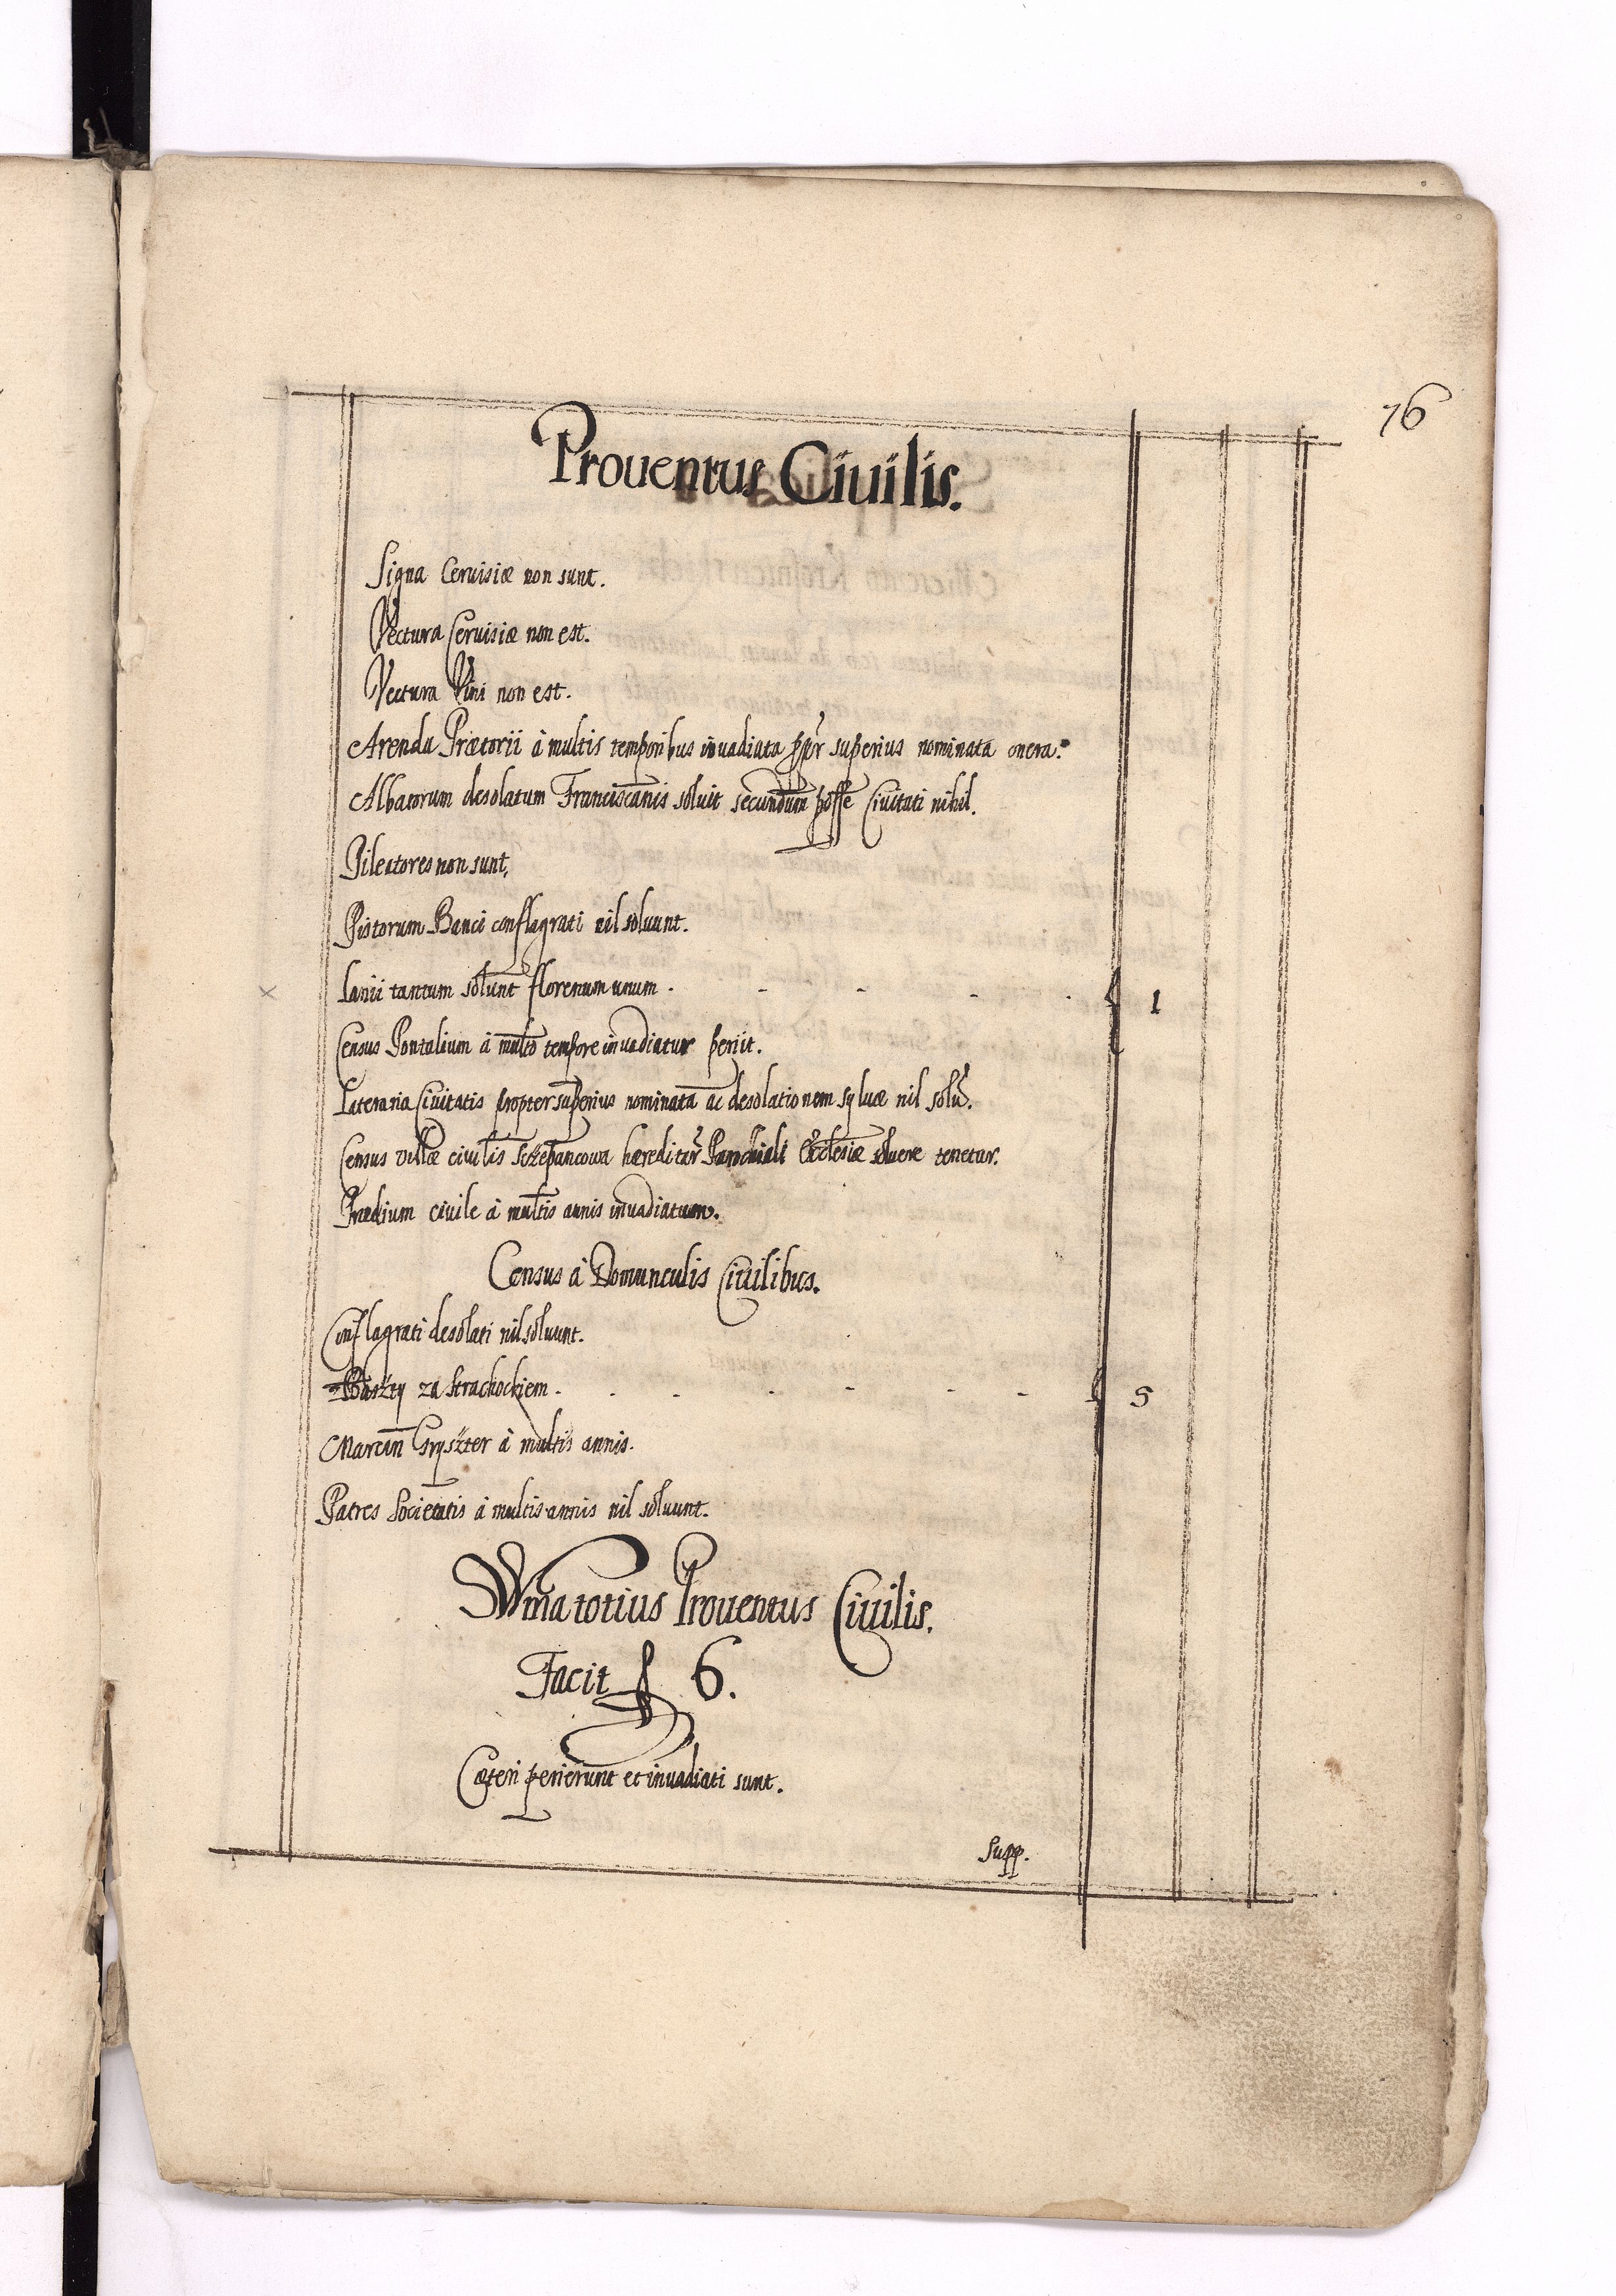 76
Prouentus Ciuilis.
Signa Ceruisiæ non sunt.
Vectura Ceruisiæ non est.
Vectura Vini non est.
Arenda Prætorii à multis temporibus inuadiata superius nominata onera.
Albatorum desolatum Franciscanis soluit secundum posse Ciuitati nihil.
Pileatores non sunt.
Pistorum Banci conflagrati nil soluunt.
Lanii tantum soluunt florenum unum . - - - . f 1
Census Pontalium à multo tempore inuadiatur periit.
Lateraria Ciuitatis propter superius nominata ac desolationem syluæ nil solu.
Census villæ ciuilis Sczepancowa hæreditar Parochiali Ecclesiæ soluere tenetur.
Prædium ciuile à multis annis inuadiatum.
Census à Domunculis Ciuilibus.
Conflagrati desolati nil soluunt.
Baszty za Strachockiem . . - - - - - f 5
Marcin Gryszter à multis annis.
Patres Societatis à multis annis nil soluunt.
Sum̄a totius Prouentus Ciuilis.
Facit f 6.
Cæteri perierunt et inuadiati sunt.
Supp.